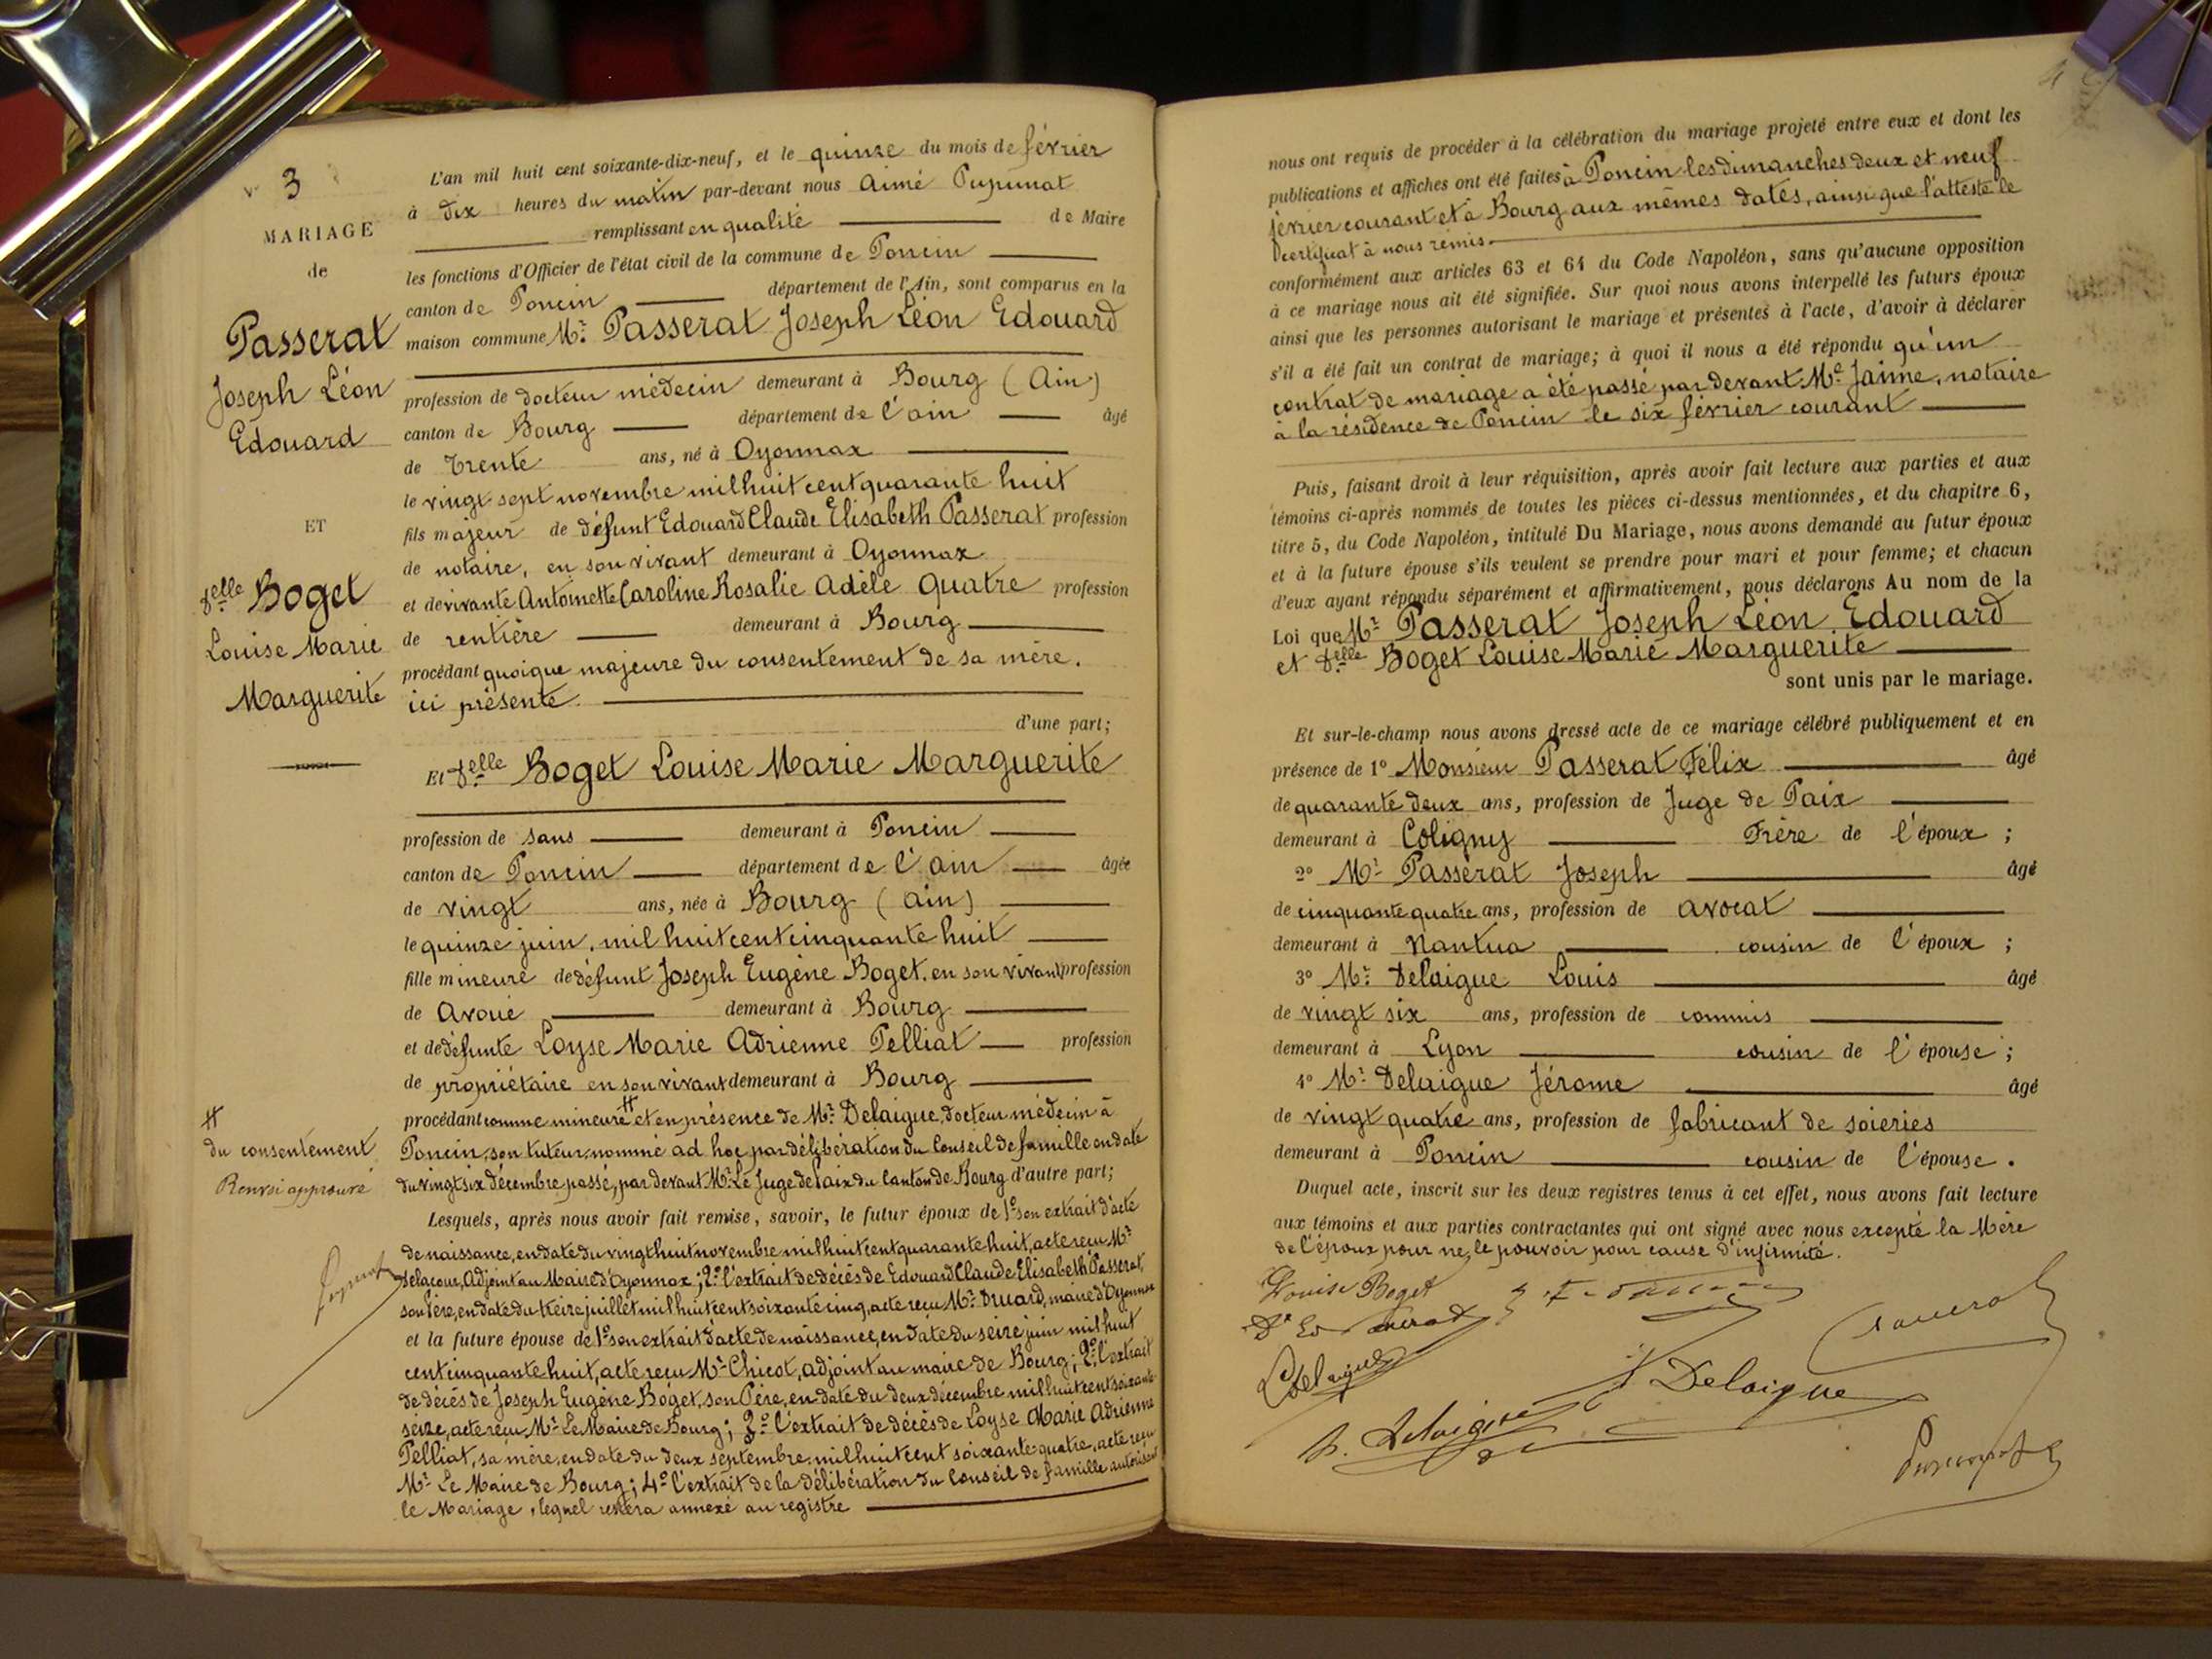 N° 3
MARIAGE
de
Passerat
Joseph Léon
Edouard
ET
Delle Boget
Louise Marie
Marguerite
#
du consentement
Renvoi approuvé
L'an mil huit cent soixante-dix-neuf, et le quinze du mois de février
à dix heures du matin par-devant nous Aimé Pupunat
remplissant en qualité de Maire
les fonctions d'Officier de l'état civil de la commune de Poncin
canton de Poncin département de l'Ain, sont comparus en la
maison commune Mr Passerat Joseph Léon Edouard
profession de docteur médecin demeurant à Bourg (Ain)
canton de Bourg département de l'ain âgé
de trente ans, né à Oyonnax
le vingt sept novembre mil huit cent quarante huit
fils majeur de défunt Edouard Claude Elisabeth Passerat profession
de notaire, en son vivant demeurant à Oyonnax
et de vivante Antoinette Caroline Rosalie Adèle Quatre profession
de rentière demeurant à Bourg
procédant quoique majeure du consentement de sa mère,
ici présente.
d'une part;
Et Delle Boget Louise Marie Marguerite
profession de sans demeurant à Poncin
canton de Poncin département de l'ain âgée
de vingt ans, née à Bourg (ain)
le quinze juin, mil huit cent cinquante huit
fille mineure de défunt Joseph Eugène Boget, en son vivant profession
de Avoué demeurant à Bourg
et de défunte Loyse Marie Adrienne Pelliat profession
de propriétaire en son vivant demeurant à Bourg
procédant comme mineure # et en présence de Mr Delaigue, docteur médecin à
Poncin, son tuteur, nommé ad hoc par délibération du Conseil de famille en date
du vingt six décembre passé, par devant Mr Le Juge de Paix du Canton de Bourg d'autre part;
Lesquels, après nous avoir fait remise, savoir, le futur époux de 1° son extrait d'acte
de naissance, en date du vingt huit novembre mil huit cent quarante huit, acte reçu Mr
Delacour, Adjoint au Maire d'Oyonnax; 2° l'extrait de décès de Edouard Claude Elisabeth Passerat,
son Père, en date du treize juillet mil huit cent soixante cinq, acte reçu Mr Druard, maire d'Oyonnax
et la future épouse de 1° son extrait d'acte de naissance, en date du seize juin mil huit
cent cinquante huit, acte reçu Mr Chicot, adjoint au maire de Bourg; 2° l'extrait
de décès de Joseph Eugène Boget, son Père, en date du deux décembre mil huit cent soixante
seize, acte reçu Mr Le Maire de Bourg; 3° l'extrait de décès de Loyse Marie Adrienne
Pelliat, sa mère, en date du deux septembre, mil huit cent soixante-quatre, acte reçu
Mr Le Maire de Bourg; 4° l'extrait de la délibération du Conseil de famille autorisant
le Mariage, lequel restera annexé au registre
nous ont requis de procéder à la célébration du mariage projeté entre eux et dont les
publications et affiches ont été faites à Poncin les dimanches deux et neuf
février courant et à Bourg aux mêmes dates, ainsi que l'atteste le
certificat à nous remis.
conformément aux articles 63 et 64 du Code Napoléon, sans qu'aucune opposition
à ce mariage nous ait été signifiée. Sur quoi nous avons interpellé les futurs époux
ainsi que les personnes autorisant le mariage et présentes à l'acte, d'avoir à déclarer
s'il a été fait un contrat de mariage; à quoi il nous a été répondu qu'un
contrat de mariage a été passé par devant Me Jaime, notaire
à la résidence de Poncin le six février courant
Puis, faisant droit à leur réquisition, après avoir fait lecture aux parties et aux
témoins ci-après nommés de toutes les pièces ci-dessus mentionnées, et du chapitre 6,
titre 5, du Code Napoléon, intitulé Du Mariage, nous avons demandé au futur époux
et à la future épouse s'ils veulent se prendre pour mari et pour femme; et chacun
d'eux ayant répondu séparément et affirmativement, nous déclarons Au nom de la
Loi que Mr Passerat Joseph Léon Edouard
et Delle Boget Louise Marie Marguerite
sont unis par le mariage.
Et sur-le-champ nous avons dressé acte de ce mariage célébré publiquement et en
présence de 1° Monsieur Passerat Félix âgé
de quarante deux ans, profession de Juge de Paix
demeurant à Coligny Frère de l'époux;
2° Mr Passerat Joseph âgé
de cinquante quatre ans, profession de avocat
demeurant à Nantua cousin de l'époux;
3° Mr Delaigue Louis âgé
de vingt six ans, profession de commis
demeurant à Lyon cousin de l'épouse;
4° Mr Delaigue Jérome âgé
de vingt quatre ans, profession de fabricant de soieries
demeurant à Poncin cousin de l'épouse.
Duquel acte, inscrit sur les deux registres tenus à cet effet, nous avons fait lecture
aux témoins et aux parties contractantes qui ont signé avec nous excepté la Mère
de l'époux pour ne le pouvoir pour cause d'infirmité.
Louise Boget
Dr Ed Passerat
Passerat
L Delaigue
J Delaigue
Delaigue
Pupunat